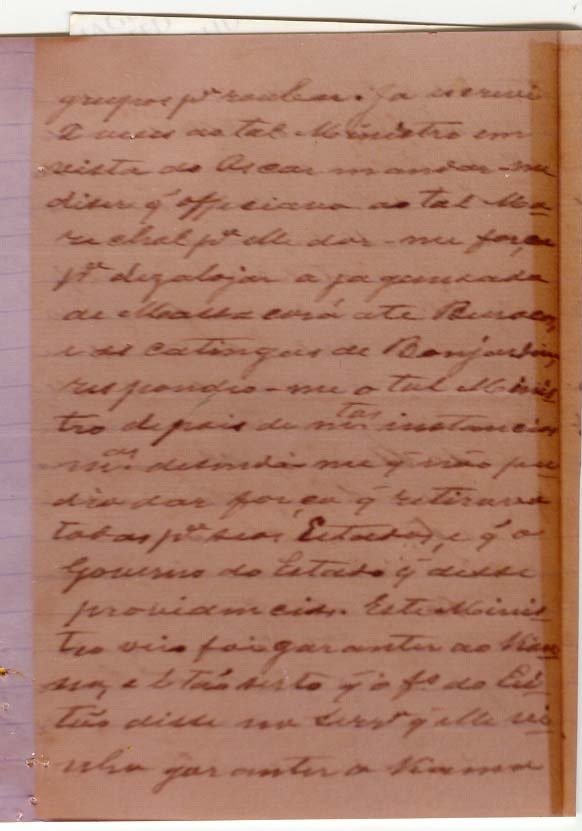 grupos pª roubar. Ja escrevi
2 veses ao tal Ministro em
vista do Oscar mandar-me
diser q' offeciava ao tal Ma-
rechal pª elle dar-me força
pª desalojar a jagunsada
de Massacará ate Buracos,
e as catingas de Bonjardim,
respondeo-me o tal Minis-
tro depois de mtas instancias
mas q' não po-
dia dar força q' retirava
todas pª seos Estados, e q' o
Governo do Estado q' desse
providencias. Este Minis-
tro veio foi garantir ao Vian-
na, e é tão serto q' o fº do
disse no q' elle vi-
nha garantir o Vianna